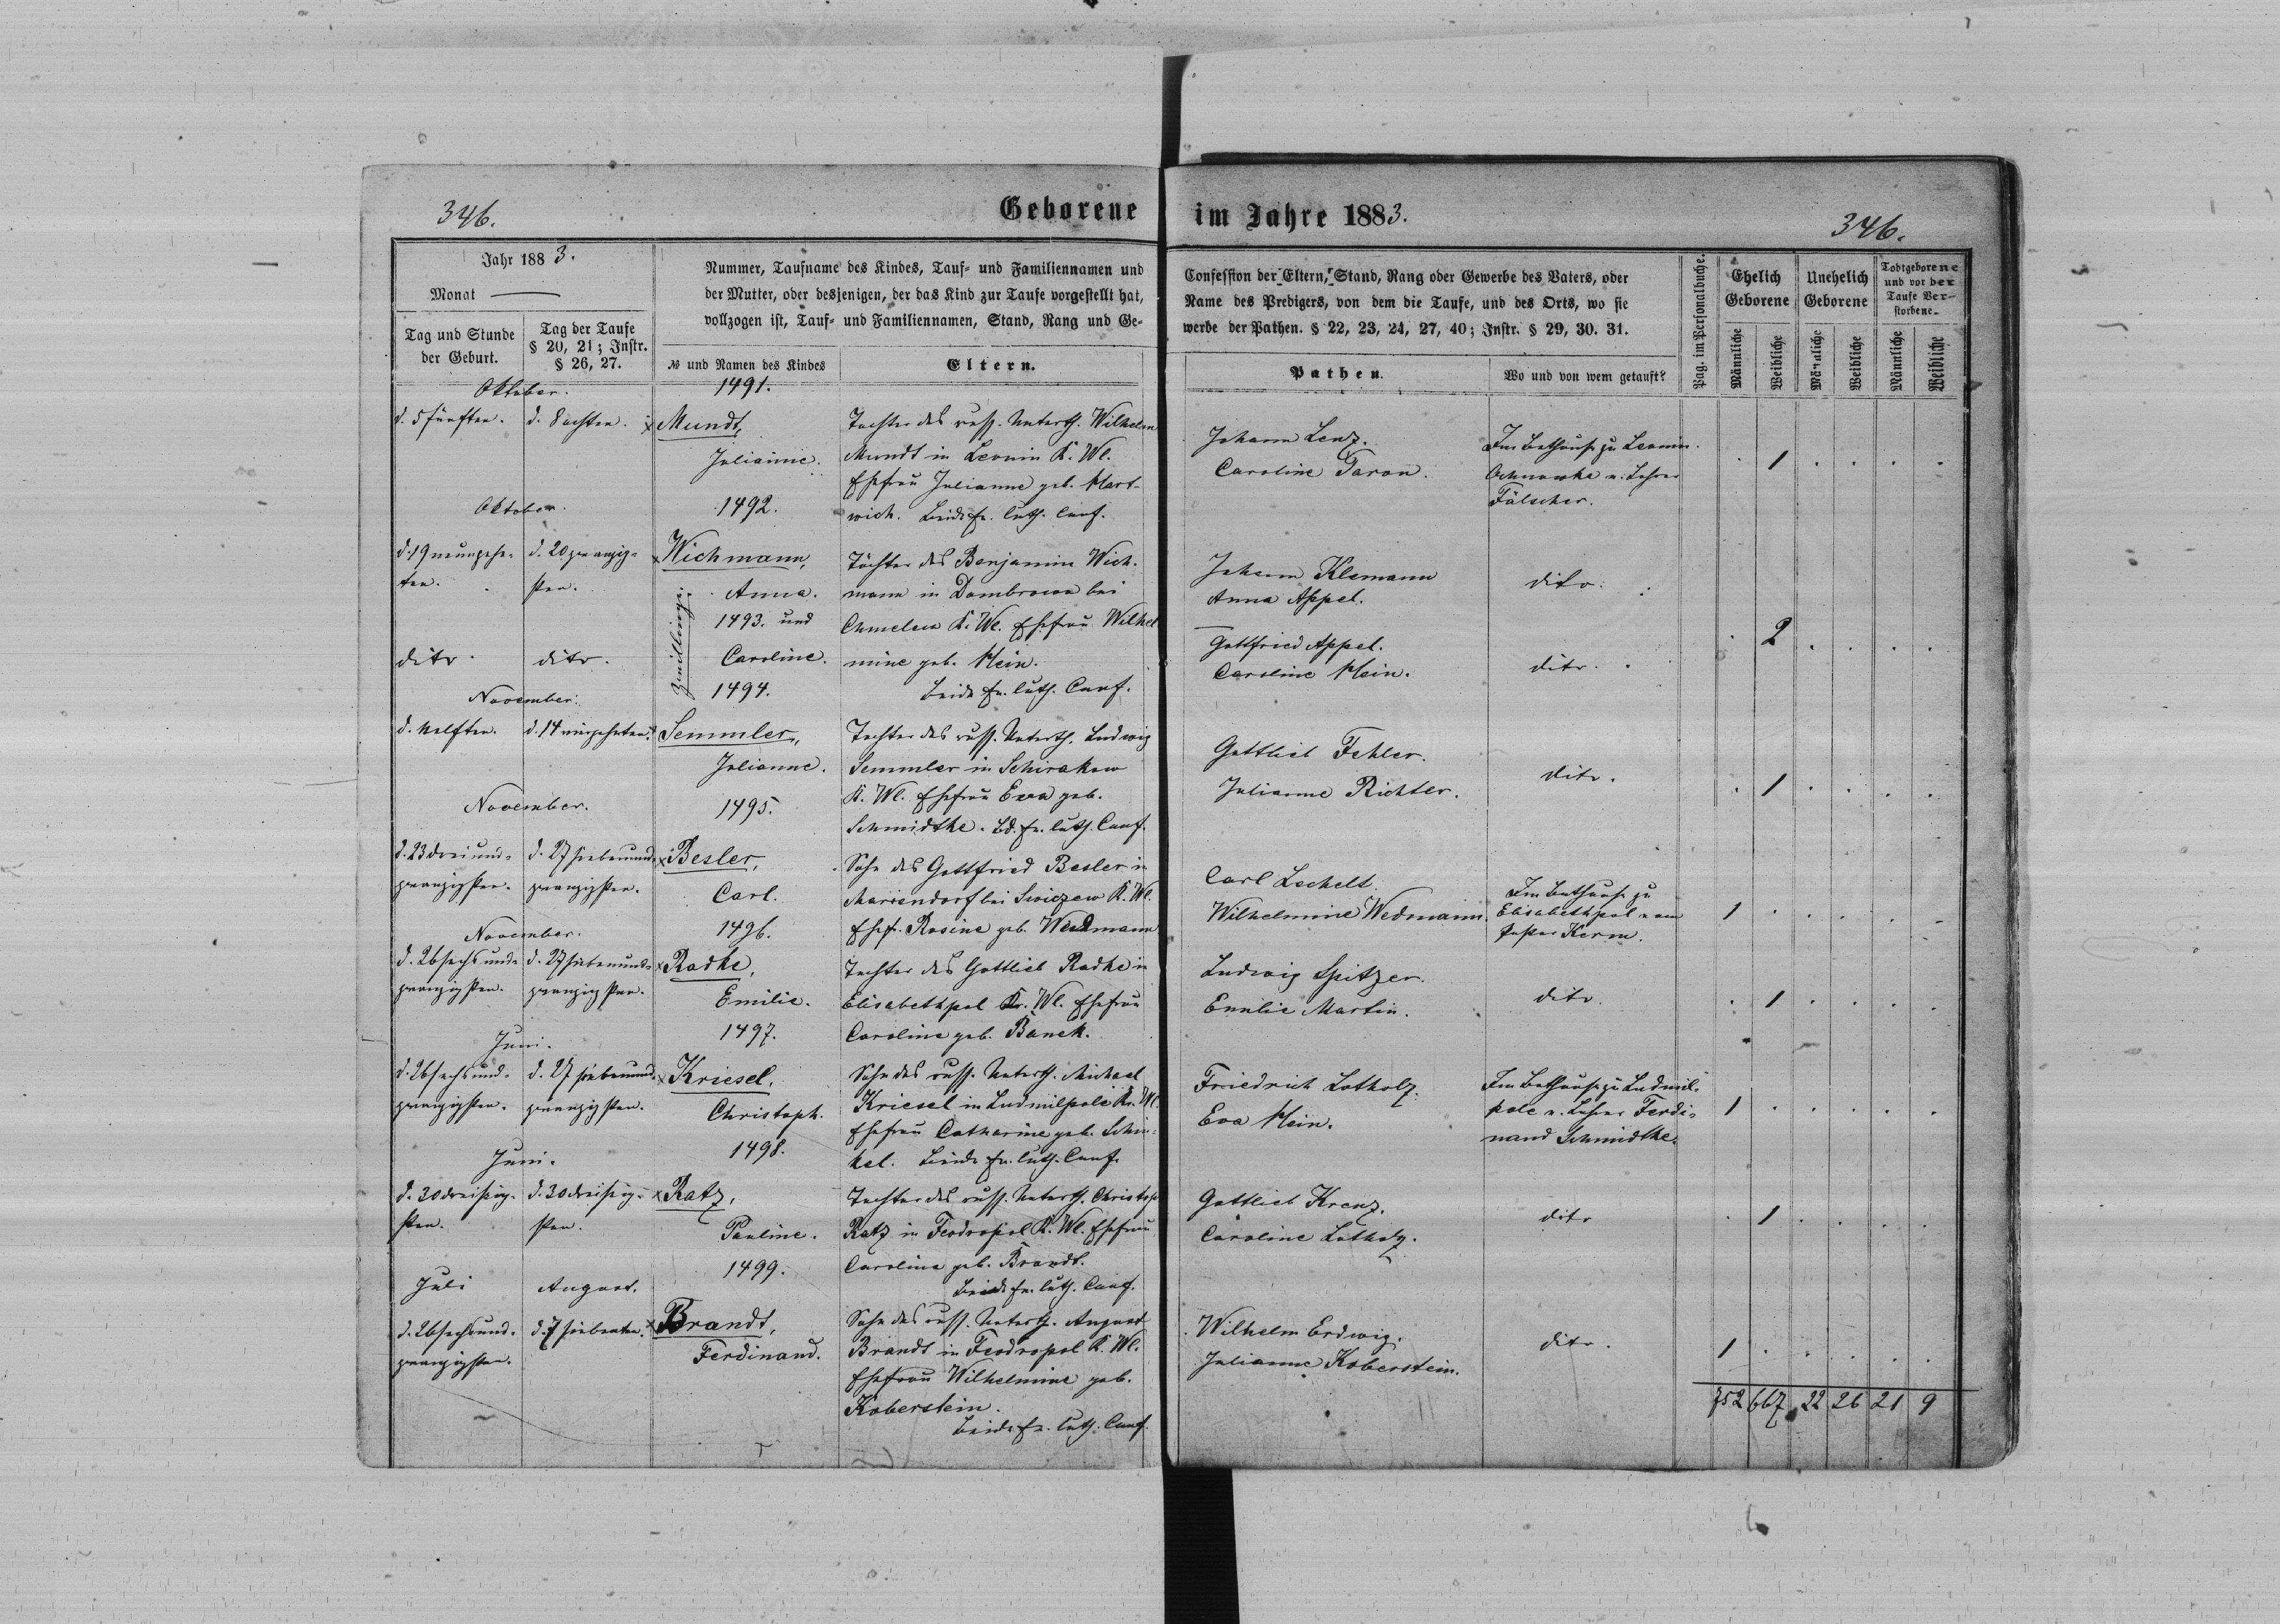 346.
Geborene im Jahre 1883.
346.
Jahr 1883.
Monat
Tag und Stunde der Geburt.
Tag der Taufe § 20, 21; Instr. § 26, 27.
Nummer, Taufname des Kindes, Tauf- und Familiennamen und
der Mutter, oder desjenigen, der das Kind zur Taufe vorgestellt hat,
vollzogen ist, Tauf- und Familiennamen, Stand, Rang und Ge-
№ und Namen des Kindes
Eltern.
Confession der Eltern, Stand, Rang oder Gewerbe des Vaters, oder
Name des Predigers, von dem die Taufe, und des Orts, wo sie
werbe der Pathen. § 22, 23, 24, 27, 40; Instr. § 29, 30. 31.
Pathen.
Wo und von wem getauft?
Pag. im Personalbuche.
Ehelich Geborene
Unehelich Geborene
Todtgeborene und vor der Taufe Verstorbene.
Männliche
Weibliche
Männliche
Weibliche
Männliche
Weibliche
Oktober.
1491.
d. 5 fünften.
d. 8 achten.
Mundt,
Julianne.
Tochter des russ. Unterth. Wilhelm
Mundt in Leonin K. Wl.
Ehefrau Julianne geb. Hart-
wich. Beide ev. luth. Conf.
Johann Lenz.
Caroline Taron.
Im Bethause zu Leonin.
v. Lehrer
Fälscher.
1
Oktober.
1492.
d. 19 neunzehn-
ten.
d. 20 zwanzig-
sten.
Wichmann,
Anna.
1493. und
Caroline.
Zwillinge.
Töchter des Benjamin Wich-
mann in Dombrowa bei
K. Wl. Ehefrau Wilhel
mine geb. Hein.
Beide ev. luth. Conf.
Johann Klemann
Anna Appel.
dito.
2
dito.
dito.
Gottfried Appel.
Caroline Hein.
dito.
November.
1494.
d. 11 elften.
d. 14 vierzehnten.
Semmler,
Julianne.
Tochter des russ. Unterth. Ludwig
Semmler in Schirakow
K. Wl. Ehefrau Eva geb.
Schmidtke. Bd. ev. luth. Conf.
Gottlieb Fehler.
Julianne Richter.
dito.
1
November.
1495.
d. 23 dreiund-
zwanzigsten.
d. 27 siebenund-
zwanzigsten.
Besler,
Carl.
Sohn des Gottfried Besler in
Mariendorf bei Swiczew K. Wl.
Ehefr. Rosine geb. Wedmann
Carl Lochelt.
Wilhelmine Wedmann.
Im Bethause zu
Elisabethpol vom
Pastor Kerm.
1
November.
1496.
d. 26 sechsund-
zwanzigsten.
d. 27 siebenund-
zwanzigsten.
Radke,
Emilie.
Tochter des Gottlieb Radke in
Elisabethpol Kr. Wl. Ehefrau
Caroline geb. Banek.
Ludwig Spitzer.
Emilie Martin.
dito.
1
Juni.
1497.
d. 26 sechsund-
zwanzigsten.
d. 27 siebenund-
zwanzigsten.
Kriesel,
Christoph.
Sohn des russ. Unterth. Michael
Kriesel in Ludmilpole Kr. Wl.
Ehefrau Catharine geb. Schin-
kel. Beide ev. luth. Conf.
Friedrich Lotholz.
Eva Hein.
Im Bethause zu Ludmil-
pole v. Lehrer Ferdi-
nand Schmidtke.
1
Juni.
1498.
d. 30 dreißig-
sten.
d. 30 dreißig-
sten.
Ratz,
Pauline.
Tochter des russ. Unterth. Christoph
Ratz in Feodropol K. Wl. Ehefrau
Caroline geb. Brandt.
Beide ev. luth. Conf.
Gottlieb Krenz.
Caroline Lotholz.
dito
1
Juli
August.
1499.
d. 26 sechsund-
zwanzigsten.
d. 7 siebenten.
Brandt,
Ferdinand.
Sohn des russ. Unterth. August
Brandt in Feodropol K. Wl.
Ehefrau Wilhelmine geb.
Koberstein.
Beide ev. luth. Conf.
Wilhelm Erdwig.
Julianne Koberstein.
dito.
1
752 667 22 26 21 9